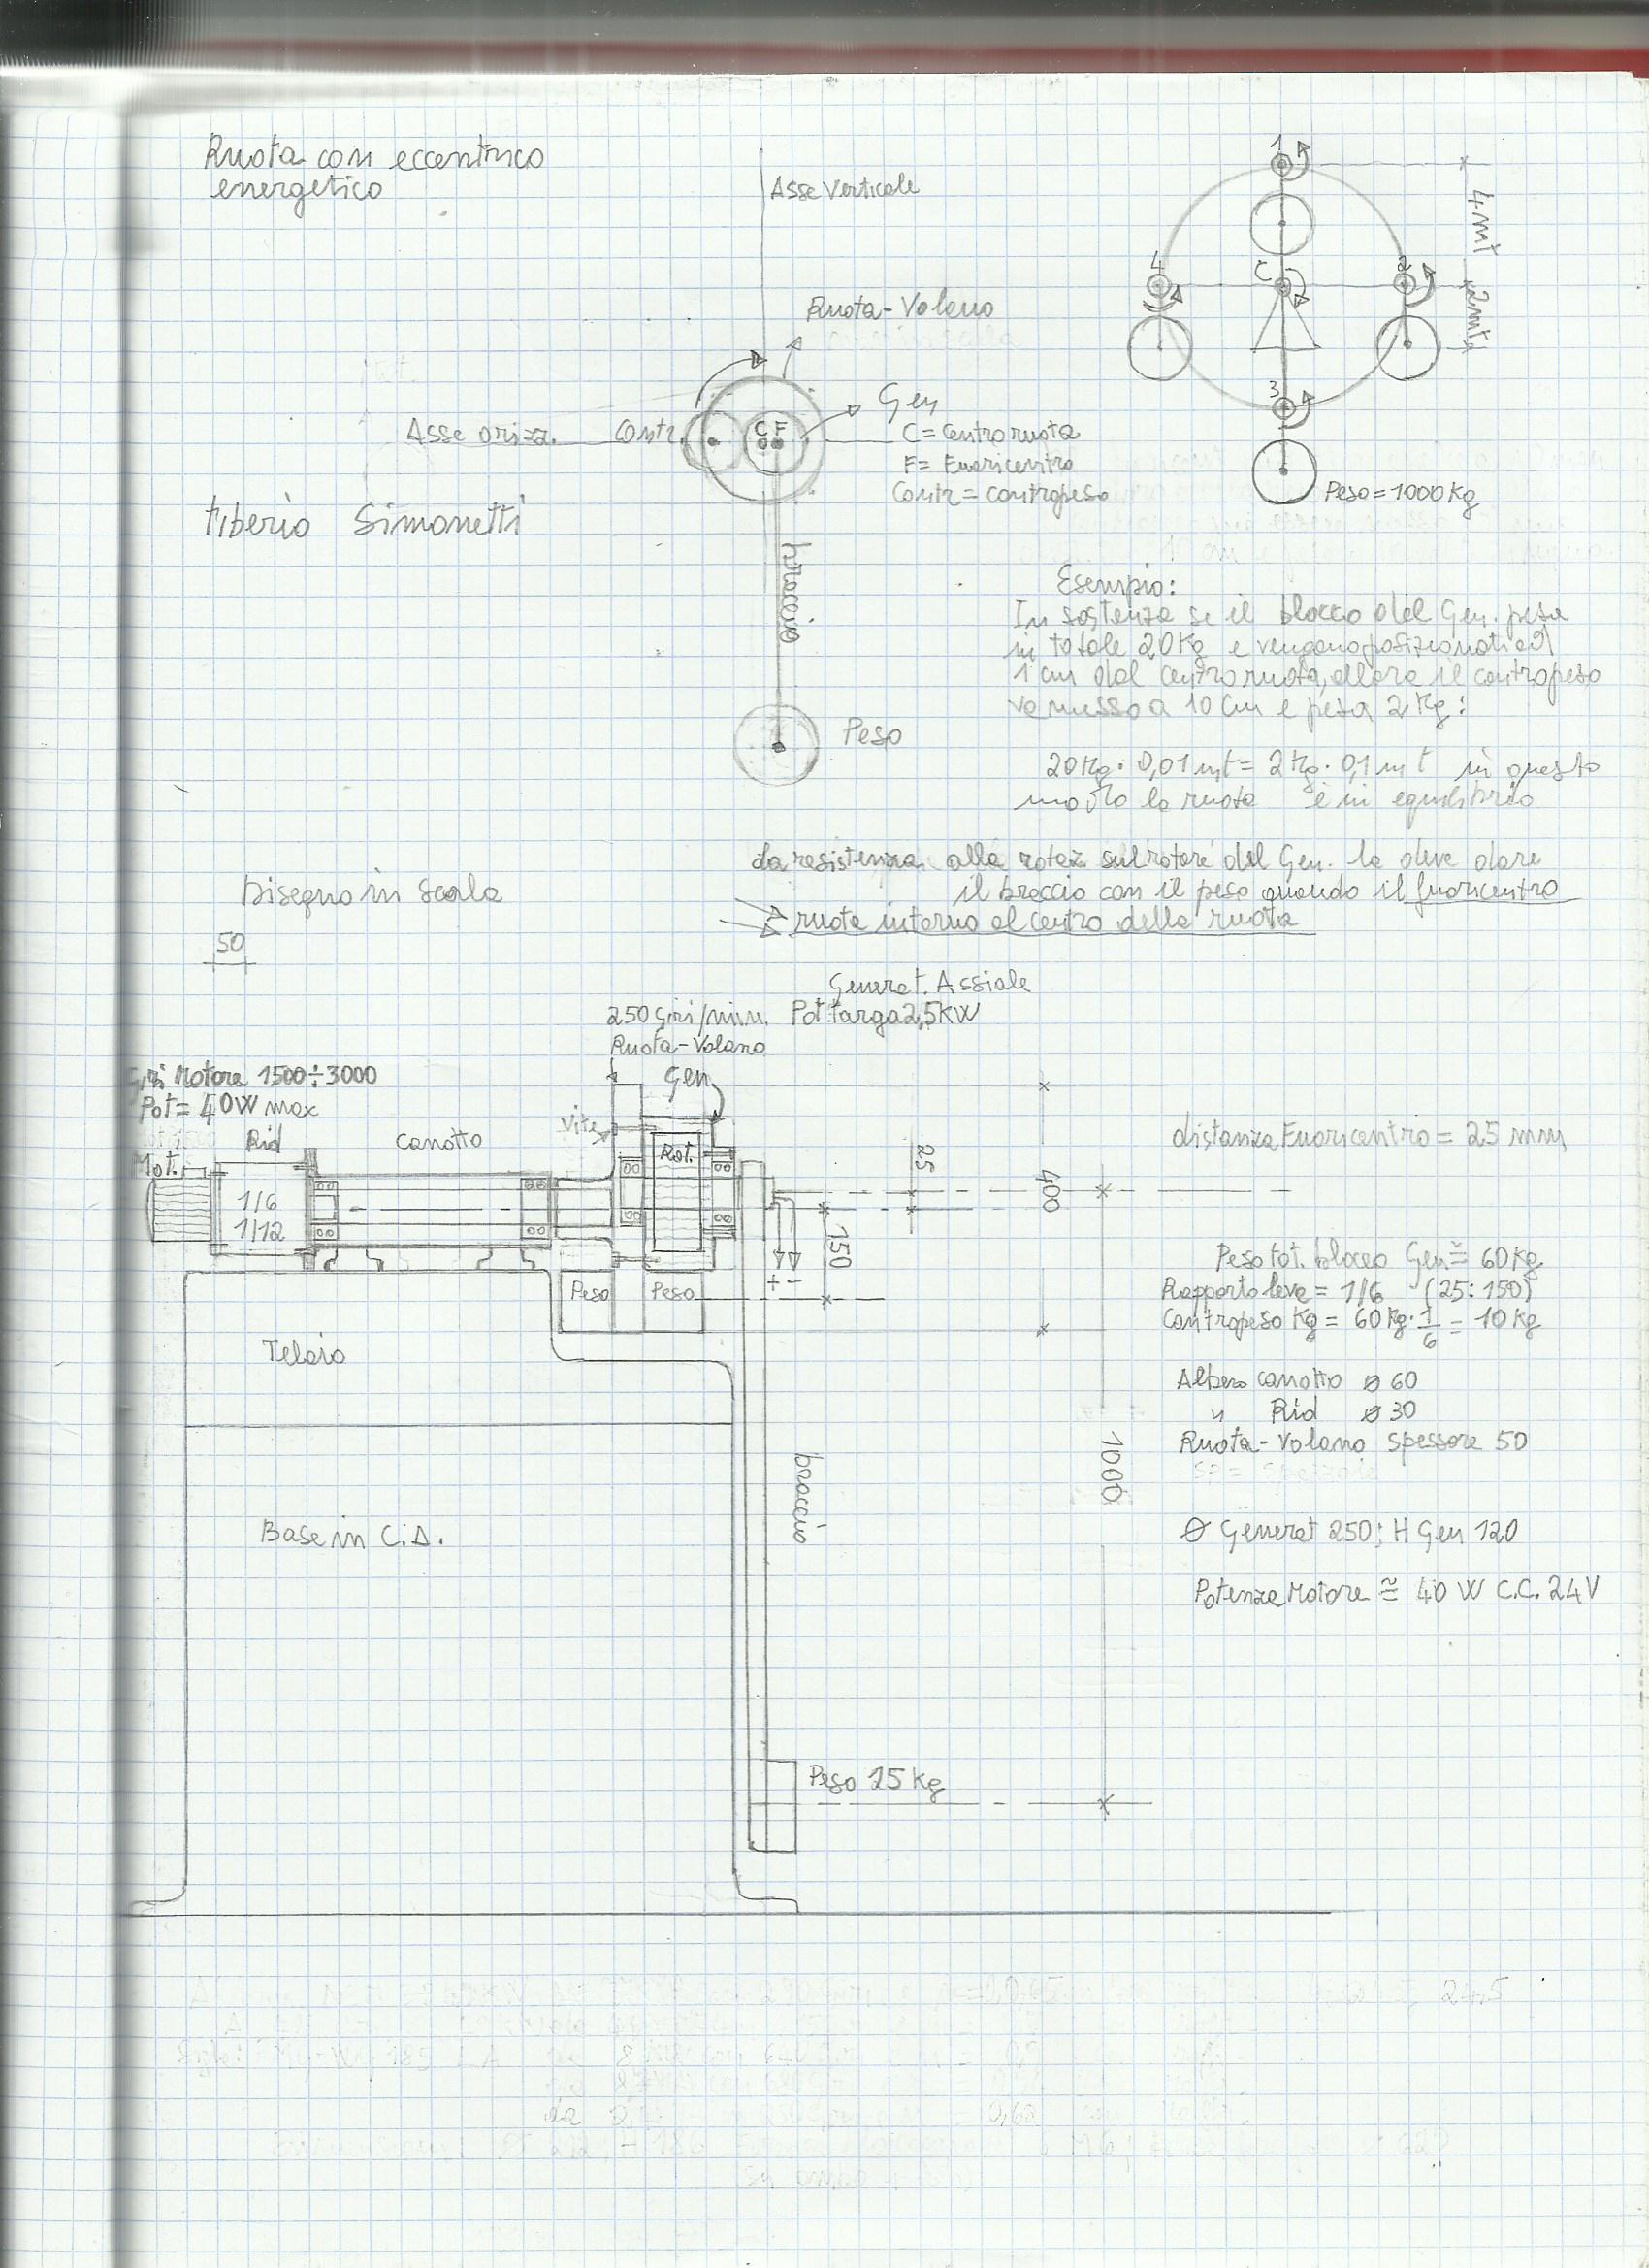 Ruota con eccentrico
energetico
Asse Verticale
Ruota-Volano
Asse orizz.
Contr.
C F
Gen
C= Centro ruota
F= Fuoricentro
Contr = contrappeso
braccio
Peso
tiberio Simonetti
1
2
3
4
C
4 mt
2 mt
Peso = 1000 Kg
Esempio:
In sostenza se il blocco del Gen. pesa
in totale 20 Kg e vengono posizionati ad
1 cm dal centro ruota, allora il contropeso
va messo a 10 Cm e pesa 2 Kg:
20 Kg · 0,01 mt = 2 Kg · 0,1 mt in questo
modo la ruota è in equilibrio
La resistenza alla rotaz sul rotore del Gen. la deve dare
il braccio con il peso quando il fuoricentro
ruota intorno al centro della ruota
Disegno in Scala
50
Generat. Assiale
250 Giri/min. Pot targa 2,5KW
Ruota-Volano
Giri Motore 1500÷3000
Pot = 40W max
Mot.
Rid
1/6
1/12
Canotto
Vite
Gen
Rot.
25
400
150
+ -
Peso
Peso
Telaio
Base in C.A.
braccio
1000
Peso 15 Kg
distanza Fuoricentro = 25 mm
Peso tot. blocco Gen ≅ 60 Kg
Rapporto leve = 1/6 (25:150)
Contropeso Kg = 60 Kg · 1/6 = 10 Kg
Albero canotto ø 60
" Rid ø 30
Ruota-Volano Spessore 50
Ø Generat 250; H Gen 120
Potenza Motore ≅ 40 W C.C. 24V